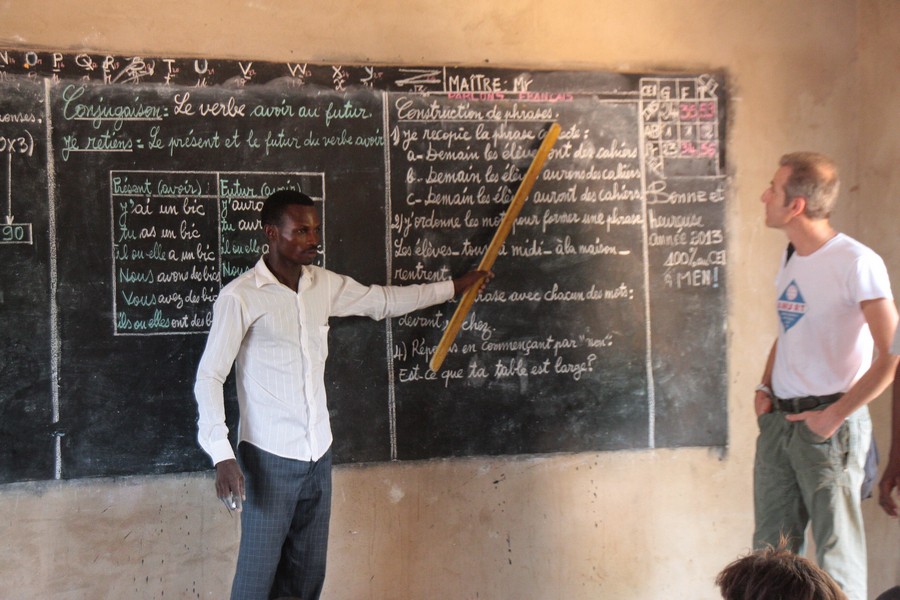 N O P Q R S T U V W X Y Z
MAÎTRE: Mr
PARLONS FRANÇAIS
0x3)
90
Conjugaison: Le verbe avoir au futur.
Je retiens: Le présent et le futur du verbe avoir
Présent (avoir): Futur (avoir)
j'ai un bic j'aura
Tu as un bic Tu aur
il ou elle a un bic il ou e
Nous avons des bics Nous
Vous avez des bics
ils ou elles ont des b
Construction de phrases.
1) Je recopie la phrase
a- Demain les élèves ont des cahiers
b- Demain les élèves aurons des cahiers
c- Demain les élèves auront des cahiers
2) J'ordonne les mots pour former une phrase
Les élèves_ tous à midi_ à la maison_
rentrent
phrase avec chacun des mots:
devant, chez.
4) Réponds en commençant par "non":
Est-ce que ta table est large?
CEI G F T
Bonne et
heureuse
année 2013
100% au CEI
AMEN!